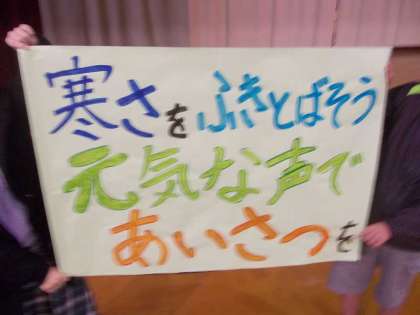 寒さをふきとばそう
元気な声で
あいさつを